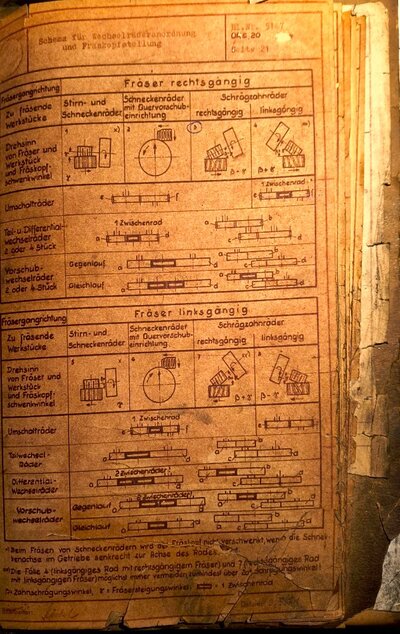 Schema für Wechselräderanordnung
und Fräskopfstellung
04.6.20
Seite 21
Fräsergangrichtung
Fräser rechtsgängig
Zu fräsende
Werkstücke
Stirn- und
Schneckenräder
Schneckenräder
mit Quervorschub-
einrichtung
Schrägzahnräder
rechtsgängig
linksgängig
Drehsinn
von Fräser und
Werkstück
und Fräskopf-
schwenkwinkel
Umschalträder
1 Zwischenrad
Teil- u. Differential-
wechselräder
2 oder 4 Stück
1 Zwischenrad
Vorschub-
wechselräder
2 oder 4 Stück
Gegenlauf
Gleichlauf
Fräsergangrichtung
Fräser linksgängig
Zu fräsende
Werkstücke
Stirn- und
Schneckenräder
Schneckenräder
mit Quervorschub-
einrichtung
Schrägzahnräder
rechtsgängig
linksgängig
Drehsinn
von Fräser und
Werkstück
und Fräskopf-
schwenkwinkel
Umschalträder
1 Zwischenrad
Teilwechsel-
räder
Differential-
wechselräder
2 Zwischenräder
Vorschub-
wechselräder
Gegenlauf
2 Zwischenräder
Gleichlauf
Beim Fräsen von Schneckenrädern wird der Fräskopf nicht verschwenkt, wenn die Schnek-
kenachse im Getriebe senkrecht zur Achse des Rades
Die Fälle 4 (linksgängiges Rad mit rechtsgängigem Fräser) und 7 (rechtsgängiges Rad
mit linksgängigem Fräser) möglichst immer vermeiden, zumindest über 20° Schrägungswinkel
Zahnschrägungswinkel, γ = Fräsersteigungswinkel, = 1 Zwischenrad